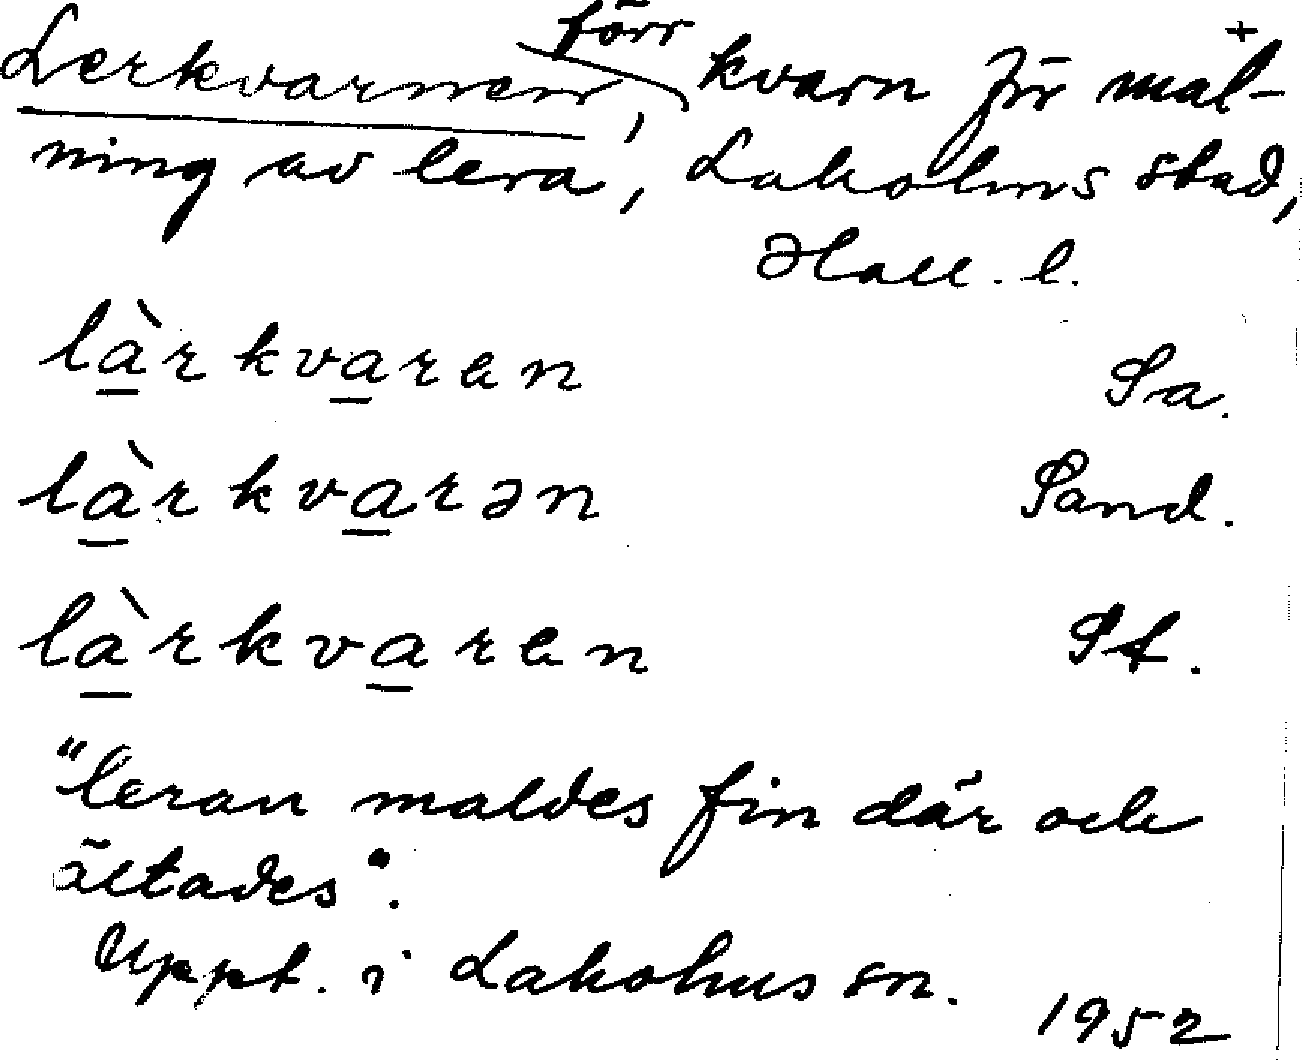 Lerkvarnen, förr kvarn för mal-
ning av lera, Laholms stad,
Hall. l.
là̱rkva̱ren Sa.
là̱rkva̱rən Sand.
là̱rkva̱ren St.
"leran maldes fin där och
ältades".
Uppt. i Laholms sn.
1952